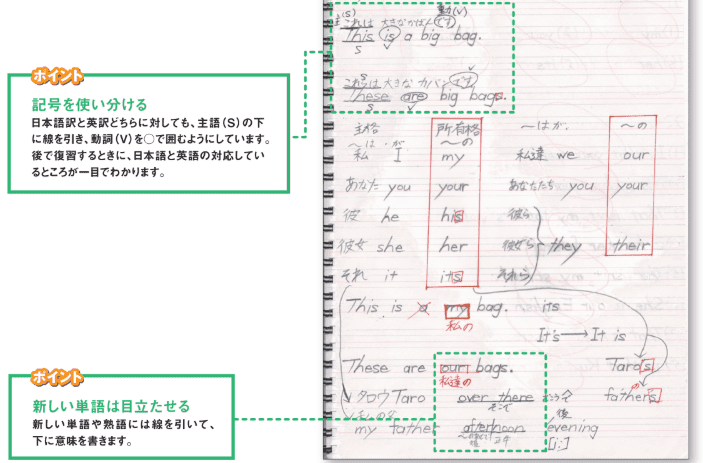 ポイント
記号を使い分ける
日本語訳と英訳どちらに対しても、主語(S)の下
に線を引き、動詞(V)を○で囲むようにしています。
後で復習するときに、日本語と英語の対応してい
るところが一目でわかります。
ポイント
新しい単語は目立たせる
新しい単語や熟語には線を引いて、
下に意味を書きます。
主(S) 動(V)
これは 大きなかばんです
This is a big bag.
S V
S
これらは大きな カバンです
These are big bags.
S V
主格 所有格 〜は が. 〜の
〜は・が 〜の
私 I my 私達 we our
あなた you your あなたたち you your
彼 he his 彼ら
彼女 she her 彼女ら they their
それ it its それら
This is a my bag. its
私の
It's → It is
These are our bags. Taro's
私達の
タロウ Taro over there father's
my father afternoon evening
[i:]